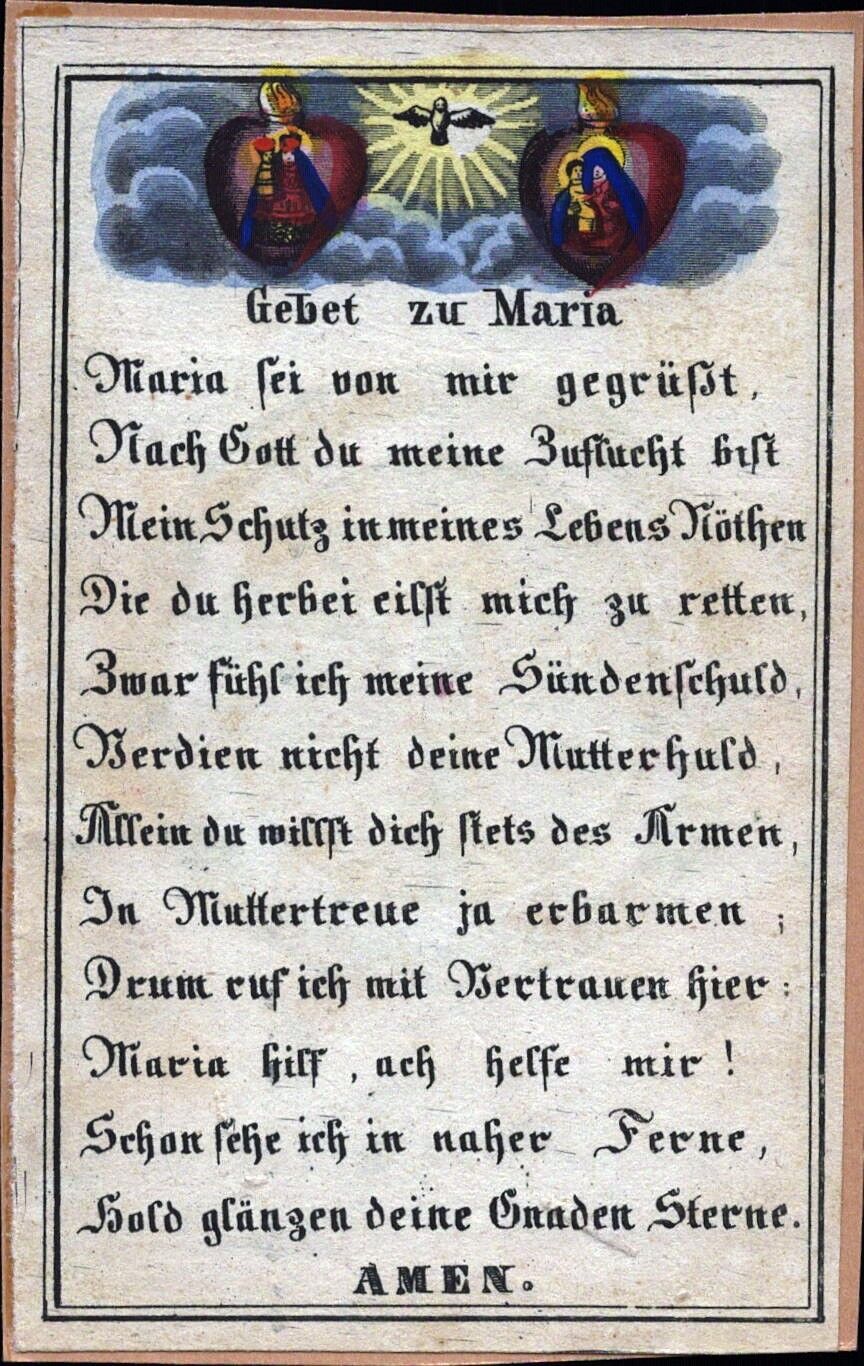 Gebet zu Maria
Maria sei von mir gegrüßt,
Nach Gott du meine Zuflucht bist
Mein Schutz in meines Lebens Nöthen
Die du herbei eilst mich zu retten,
Zwar fühl ich meine Sündenschuld,
Verdien nicht deine Mutterhuld,
Allein du willst dich stets des Armen,
In Muttertreue ja erbarmen ;
Drum ruf ich mit Vertrauen hier :
Maria hilf, ach helfe mir !
Schon sehe ich in naher Ferne,
Hold glänzen deine Gnaden Sterne.
AMEN.